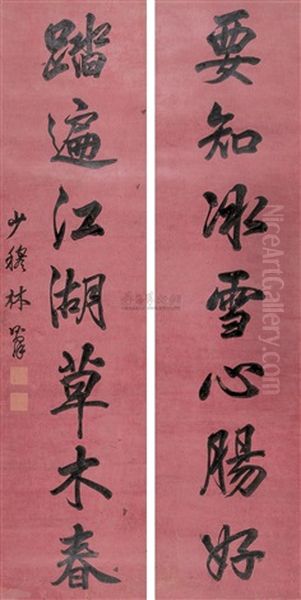 要知冰雪心腸好
踏遍江湖草木春
少穆林
NiceArtGallery.com